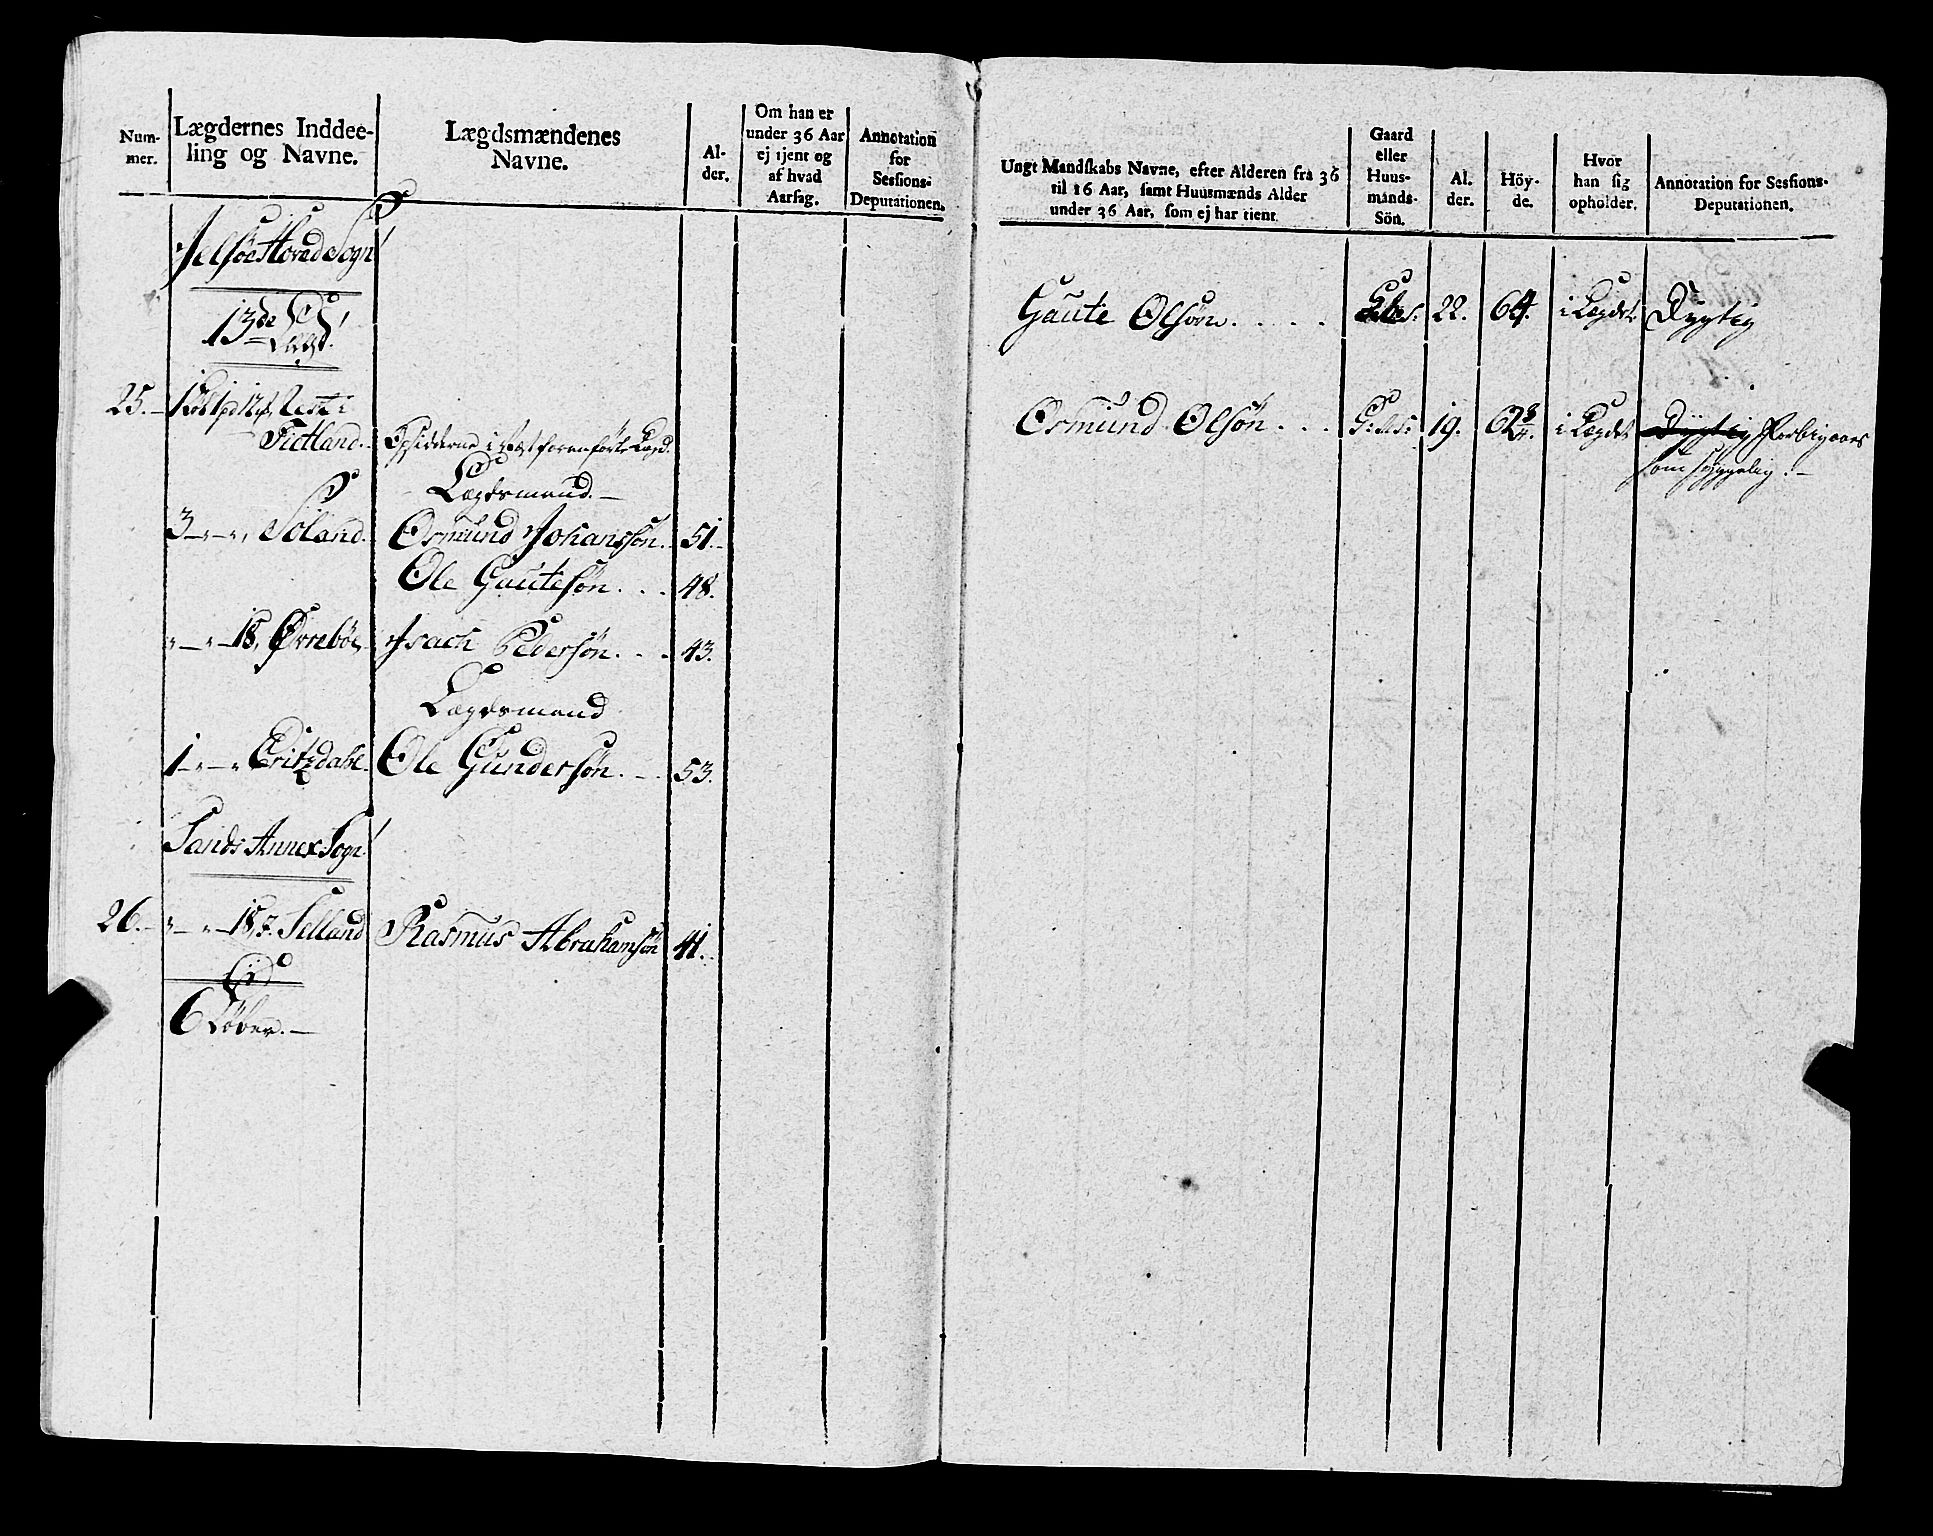 Num-
mer.
Lægdernes Inddee-
ling og Navne.
Lægdsmændenes
Navne.
Al-
der.
Om han er
under 36 Aar
ej tjent og
af hvad
Aarsag.
Annotation
for
Sessions-
Deputationen.
Jelsøe Hoved Sogn
13de Lægd!
25. 1 Løb 1 pd 12 Rest i
Fidtland. Opsidderne i næstforanførte Lægd.
Lægdsmand.
3 Søland. Osmund Johanssøn. 51.
Ole Gautesøn . . . 48.
18, Ørrebøe, Isach Pedersøn . . . 43.
Lægdsmand
1 Eritzdahl Ole Gundersøn . . 53.
Sands Annex Sogn!
26. 18, 7. Selland Rasmus Abrahamsøn 41.
6 Løber.
Ungt Mandskabs Navne, efter Alderen fra 36
til 16 Aar, samt Huusmænds Alder
under 36 Aar, som ej har tient.
Gaard
eller
Huus-
mands-
Sön.
Al.
der.
Höy-
de.
Hvor
han sig
opholder.
Annotation for Sessions-
Deputationen.
Gaute Olsøn . . . . 22. 64. i Lægdet Dygtig
Osmund Olsøn . . . G: 19. 62 3/4. i Lægdet Dygtig Forbigaaes
som skyggelig.